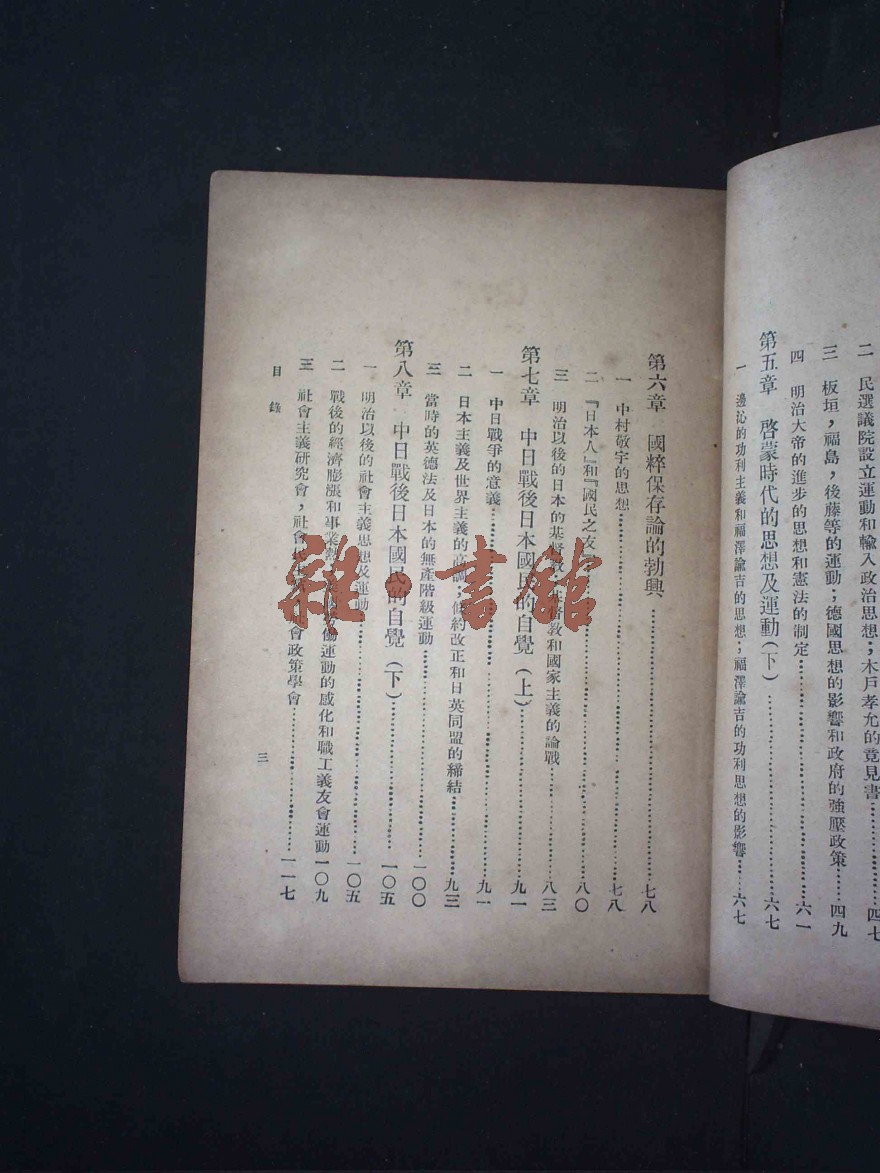 二 民選議院設立運動和輸入政治思想；木戶孝允的意見書……四七
三 板垣，福島，後藤等的運動；德國思想的影響和政府的強壓政策……四九
四 明治大帝的進步的思想和憲法的制定……六一
第五章 啓蒙時代的思想及運動（下）……六七
一 邊沁的功利主義和福澤諭吉的思想；福澤諭吉的功利思想的影響……六七
第六章 國粹保存論的勃興……七八
一 中村敬宇的思想……七八
二 『日本人』和『國民之友……八〇
三 明治以後的日本的基督教 基督教和國家主義的論戰……八三
第七章 中日戰後日本國民的自覺（上）……九一
一 中日戰爭的意義……九一
二 日本主義及世界主義的高論；條約改正和日英同盟的締結……九三
三 當時的英德法及日本的無產階級運動……一〇〇
第八章 中日戰後日本國民的自覺（下）……一〇五
一 明治以後的社會主義思想及運動……一〇五
二 戰後的經濟膨漲和事業熱 動運動的感化和職工義友會運動一〇九
三 社會主義研究會，社會 社會政策學會……一一七
目錄
三
雜·書館